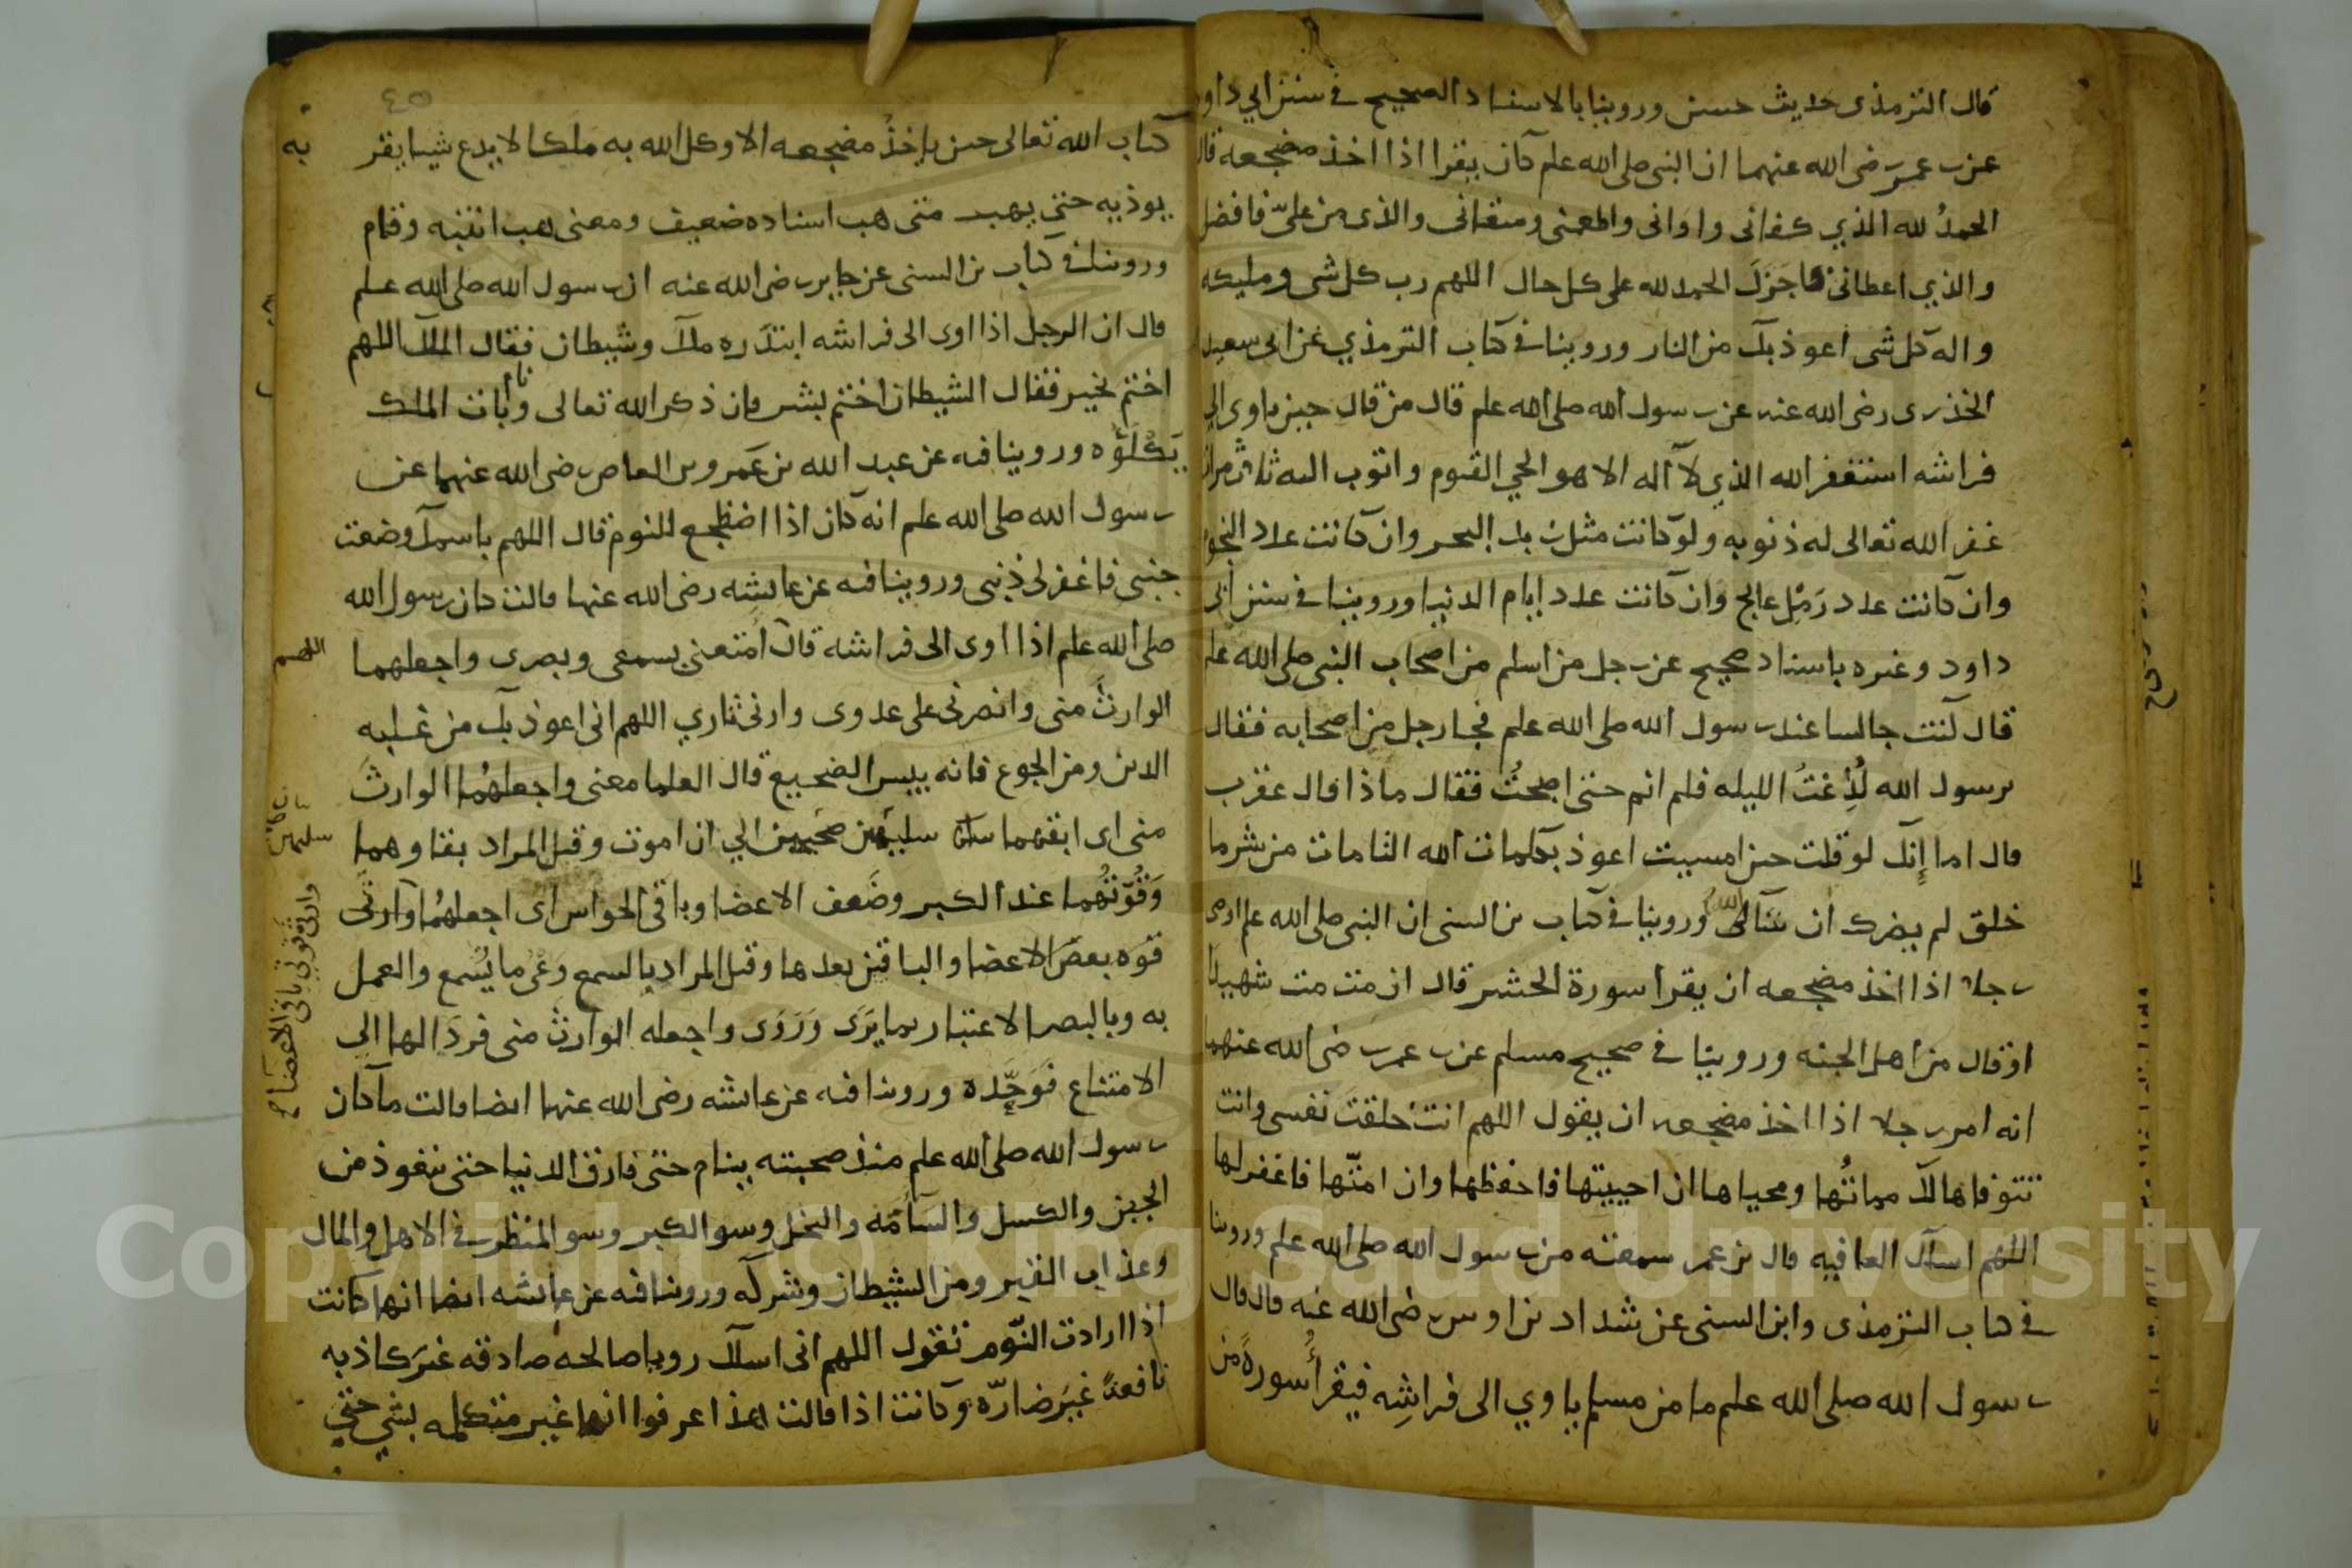 قال الترمذى حديث حسن وروينا بالاسناد الصحيح فى سنن ابي داود
عن بن عمر رضى الله عنهما ان النبى صلى الله علم كان يقرا اذا اخذ مضجعه قال
الحمدُ لله الذي كفانى واوانى واطعمنى وسقانى والذى من علىّ فافضل
والذي اعطانى فاجزلَ الحمد لله على كل حال اللهم رب كل شى ومليكه
واله كل شى اعوذ بك من النار وروينا فى كتاب الترمذي عن ابى سعيد
الخدرى رضى الله عنه عن رسول الله صلى الله علم قال من قال حين ياوى الي
فراشه استغفر الله الذي لا اله الا هو الحي القيوم واتوب اليه ثلاث مرات
غفر الله تعالى له ذنوبه ولو كانت مثل زبد البحر وان كانت عدد النجوم
وان كانت عدد رَمْل عالج وان كانت عدد ايام الدنيا وروينا فى سنن ابى
داود وغيره باسناد صحيح عن رجل من اسلم من اصحاب النبى صلى الله علم
قال كنت جالسا عند رسول الله صلى الله علم فجا رجل من اصحابه فقال
يرسول الله لُدِغتُ الليله فلم انم حتى اصبحتُ فقال ماذا قال عقرب
قال اما إنك لو قلت حين امسيت اعوذ بكلمات الله التامات من شر ما
خلق لم يضرك ان شا الله تعالى وروينا فى كتاب بن السنى ان النبى صلى الله علم اوصى
رجلا اذا اخذ مضجعه ان يقرا سورة الحشر قال ان مت مت شهيدا
او قال من اهل الجنه وروينا فى صحيح مسلم عن بن عمر رضى الله عنهما
انه امر رجلا اذا اخذ مضجعه ان يقول اللهم انت خلقت نفسى وانت
تتوفاها لك مماتُها ومحياها ان احييتها فاحفظها وان امتّها فاغفر لها
اللهم اسالك العافيه قال بن عمر سمعته من رسول الله صلى الله علم وروينا
فى كتاب الترمذى وابن السنى عن شداد بن اوس رضى الله عنه قال قال
رسول الله صلى الله علم ما من مسلم ياوي الى فراشِه فيقرأُ سورةً من
٤٥
كتاب الله تعالى حين ياخذُ مضجعه الا وكل الله به ملكا لا يدع شيا يقر به
يوذيه حتي يهب متى هب اسناده ضعيف ومعنى هب انتبه وقام
وروينا فى كتاب بن السنى عن جابر رضى الله عنه ان رسول الله صلى الله علم
قال ان الرجل اذا اوى الى فراشه ابتدره ملك وشيطان فقال الملك اللهم
اختم بخير فقال الشيطان اختم بشر فان ذكر الله تعالى وبات الملك
يَكْلَؤُه وروينا فيه عن عبد الله بن عَمرو بن العاص رضى الله عنهما عن
رسول الله صلى الله علم انه كان اذا اضطجع للنوم قال اللهم باسمك وضعت
جنبى فاغفر لى ذنبى وروينا فيه عن عائشه رضى الله عنها قالت كان رسول الله
صلى الله علم اذا اوى الى فراشه قال اللهم امتعنى بسمعى وبصرى واجعلهما
الوارثَ منى وانصرنى على عدوى وارنى ثاري اللهم انى اعوذ بك من غلبه
الدين ومن الجوع فانه بيس الضجيع قال العلما معنى واجعلهُما الوارثَ
منى اى ابقهما سليمين صحيحين الي ان اموت وقيل المراد بقاوهما
وقُوّتُهما عند الكبر وضَعف الاعضا وباقى الحواس اى اجعلهُما وارثَى
قوه بعض الاعضا والباقين بعدها وقيل المراد بالسمع وعى ما يُسمع والعمل
به وبالبصر الاعتبار بما يَرَى وَرَوَى واجعله الوارثَ منى فردّ الها الى
الامتناع فوَحّده وروينا فيه عن عائشه رضى الله عنها ايضا قالت ما كان
رسول الله صلى الله علم منذ صحبته ينام حتى فارق الدنيا حتى يتعوذ من
الجبن والكسل والسآمه والبخل وسو الكبر وسو المنظر فى الاهل والمال
وعذاب القبر ومن الشيطان وشركه وروينا فيه عن عائشه ايضا انها كانت
اذا ارادت النّوم تقول اللهم انى اسالك رويا صالحه صادقه غيرَ كاذبه
نافعةً غيرَ ضارّه وكانت اذا قالت هذا عرفوا انها غير متكلمه بشي حتي
سليمين
وارثى قوتى باقى الاعضا صح
Copyright © King Saud University